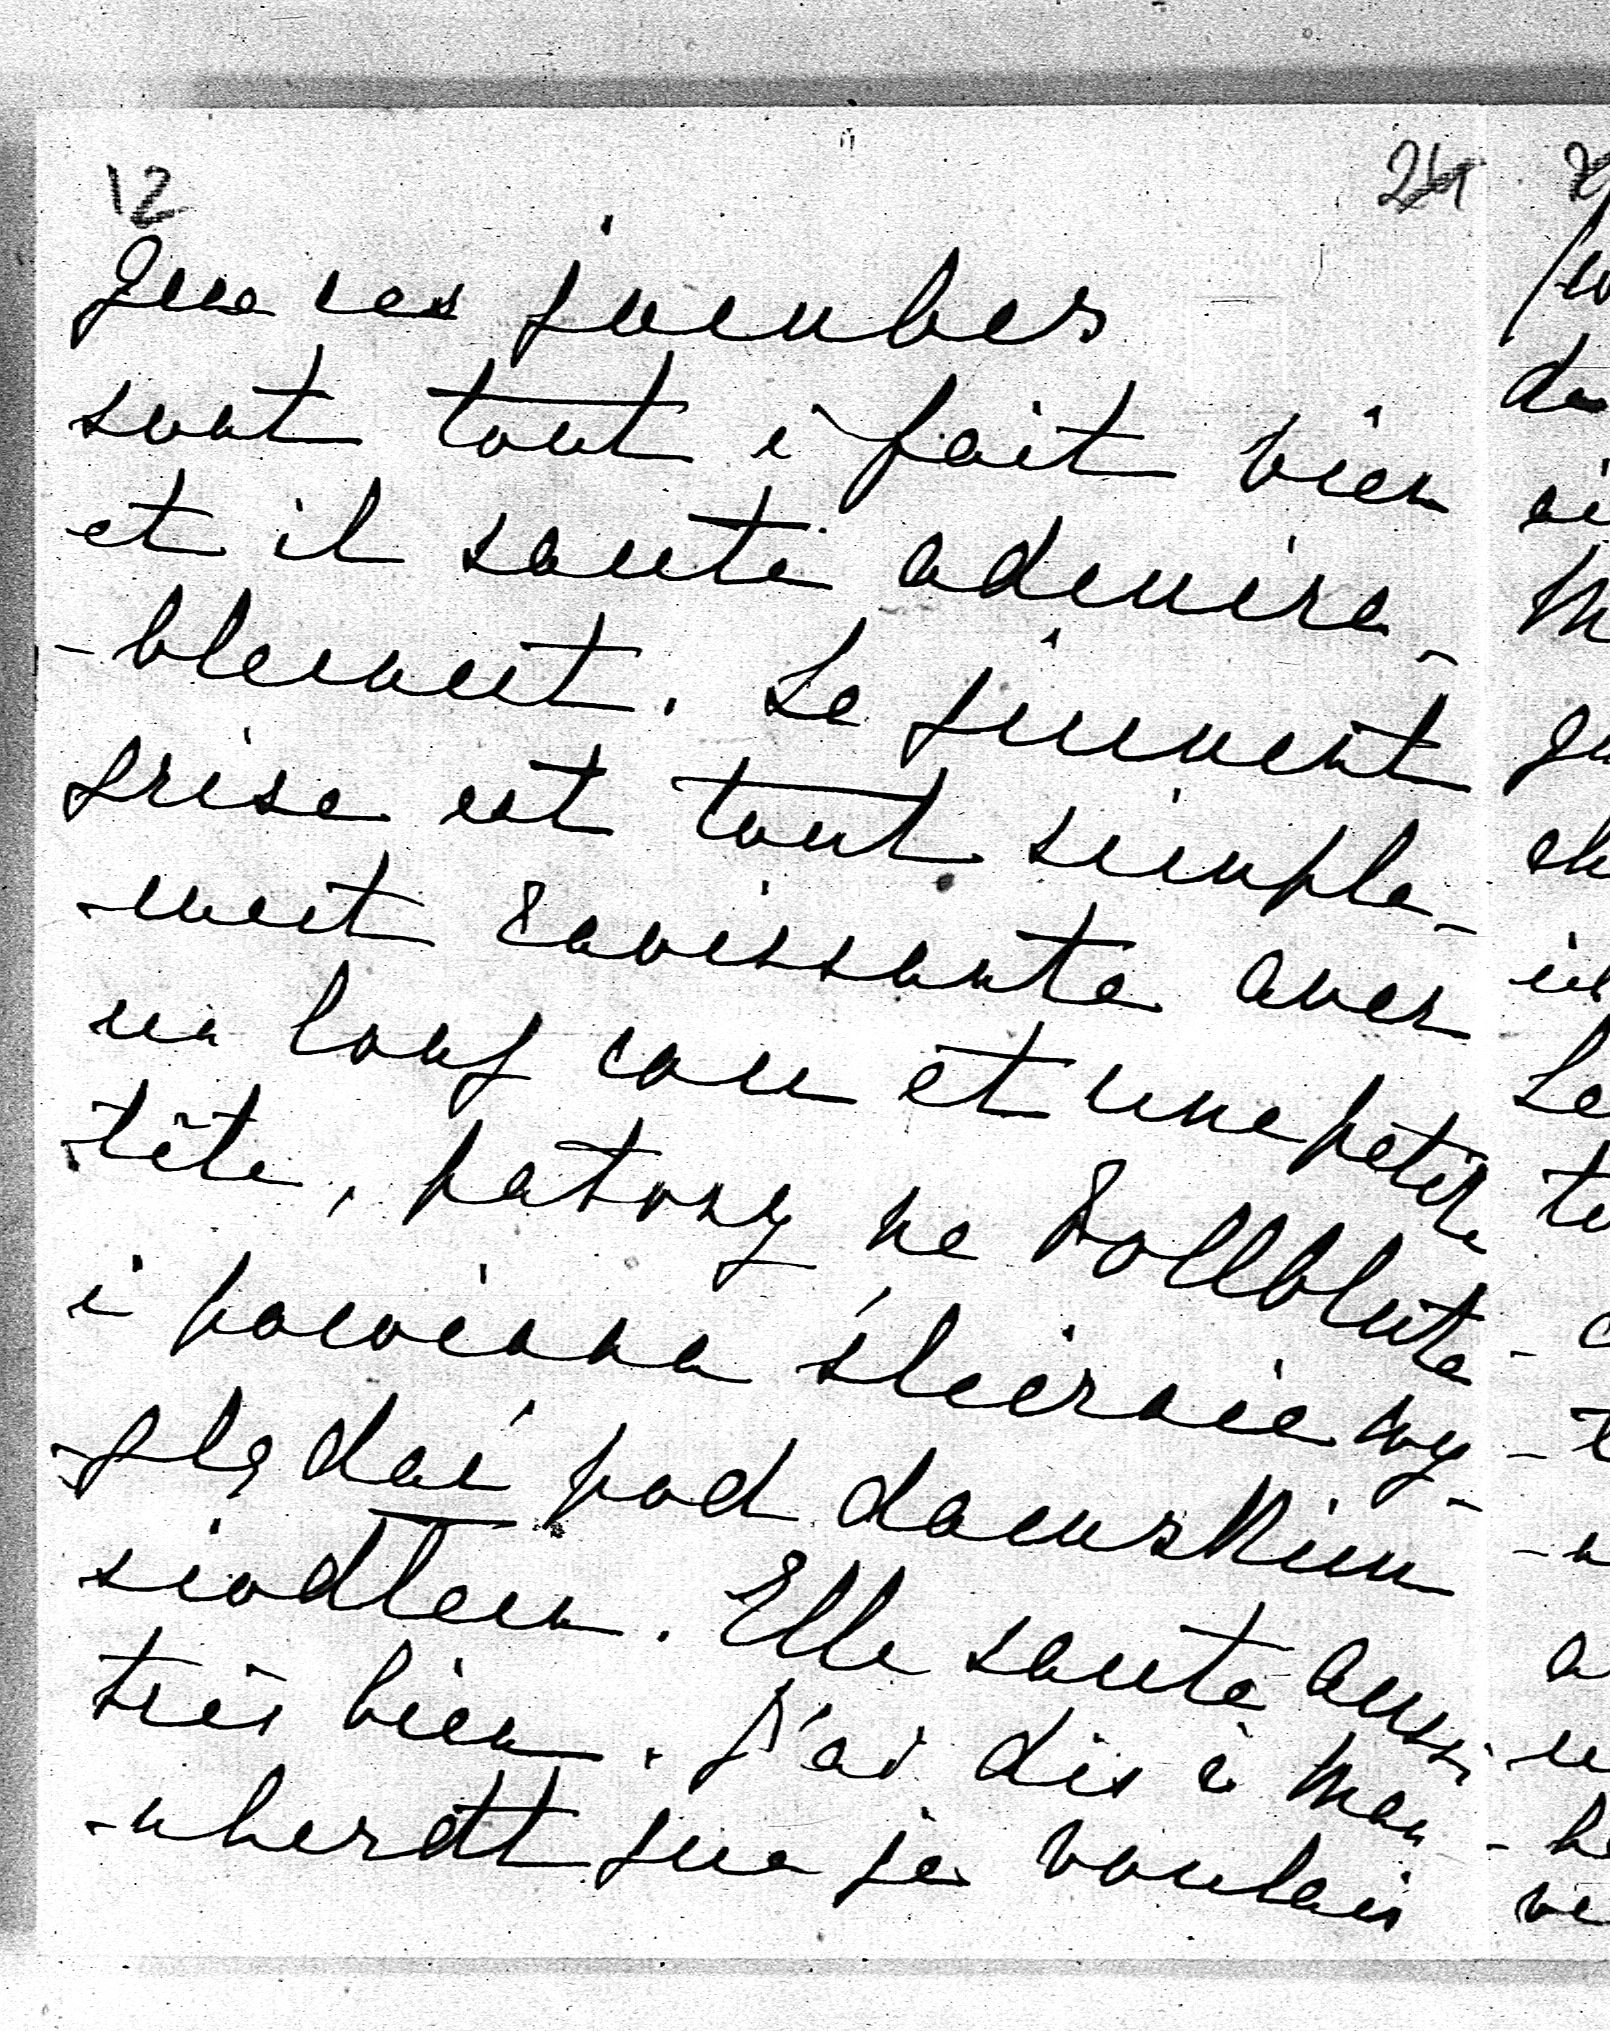 12 24
que ces jambes
sont tout à fait bien
et il saute admira-
-blement. La jument
grise est tout simple-
-ment ravissante avec
un long cou et une petite
tête, patrzy na Vollbluta
i powinna ślicznie wy-
-glądać pod damskim
siodłem. Elle saute aussi
très bien. J'ai dis à Man
-nherdt que je voulais